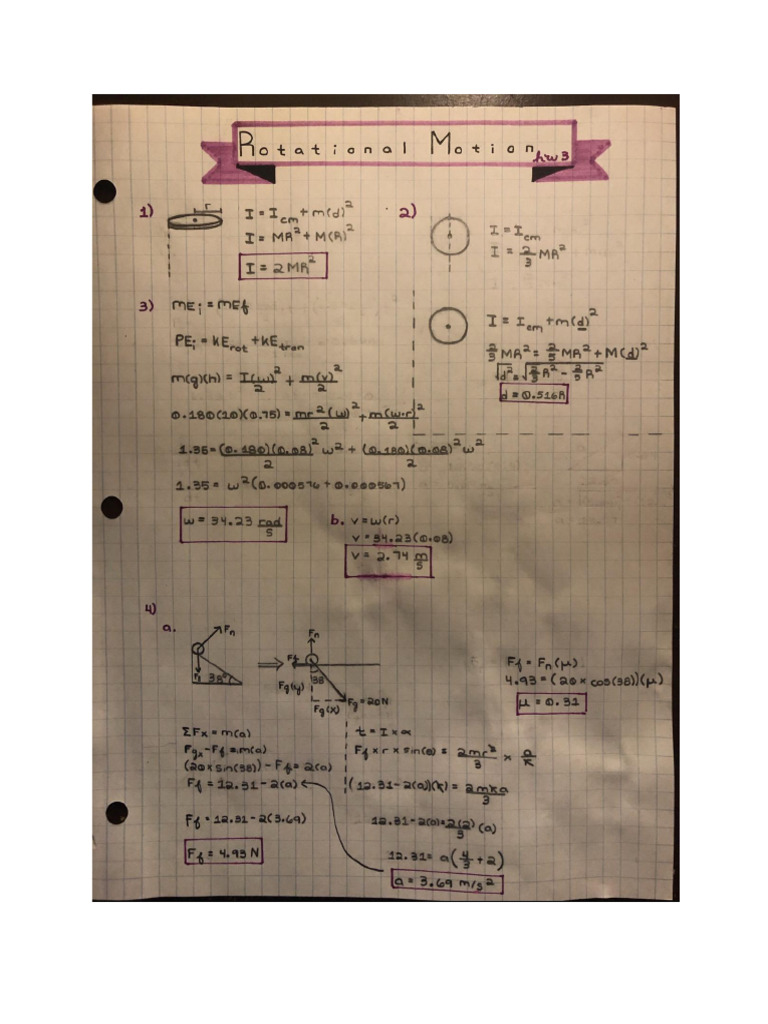 Rotational Motion hw 3
1)
r
I = Icm + m(d)²
I = MR² + M(R)²
I = 2MR²
2)
I = Icm
I = 2/3 MR²
I = Icm + m(d)²
2/3 MR² = 2/5 MR² + M(d)²
√d² = √2/3 R² - 2/5 R²
d = 0.516R
3) mEi = mEf
PEi = kErot + kEtran
m(g)(h) = I(w)²/2 + m(v)²/2
0.180(10)(0.75) = mr²(w)²/2 + m(w·r)²/2
1.35 = (0.180)(0.08)²w²/2 + (0.180)(0.08)²w²/2
1.35 = w²(0.000576 + 0.000567)
w = 34.23 rad/s
b. v = w(r)
v = 34.23(0.08)
v = 2.74 m/s
4)
a.
Fn
38°
⇒
Fn
Ff
38
Fg(y)
Fg(x)
Fg = 20N
Ff = Fn(μ)
4.93 = (20 × cos(38))(μ)
μ = 0.31
ΣFx = m(a)
Fgx - Ff = m(a)
(20 × sin(38)) - Ff = 2(a)
Ff = 12.31 - 2(a)
Ff = 12.31 - 2(3.69)
Ff = 4.93 N
t = I × α
Ff × r × sin(θ) = 2mr²/3 × a/r
(12.31 - 2(a))(r) = 2mra/3
12.31 - 2(a) = 2(2)/3 (a)
12.31 = a(4/3 + 2)
a = 3.69 m/s²